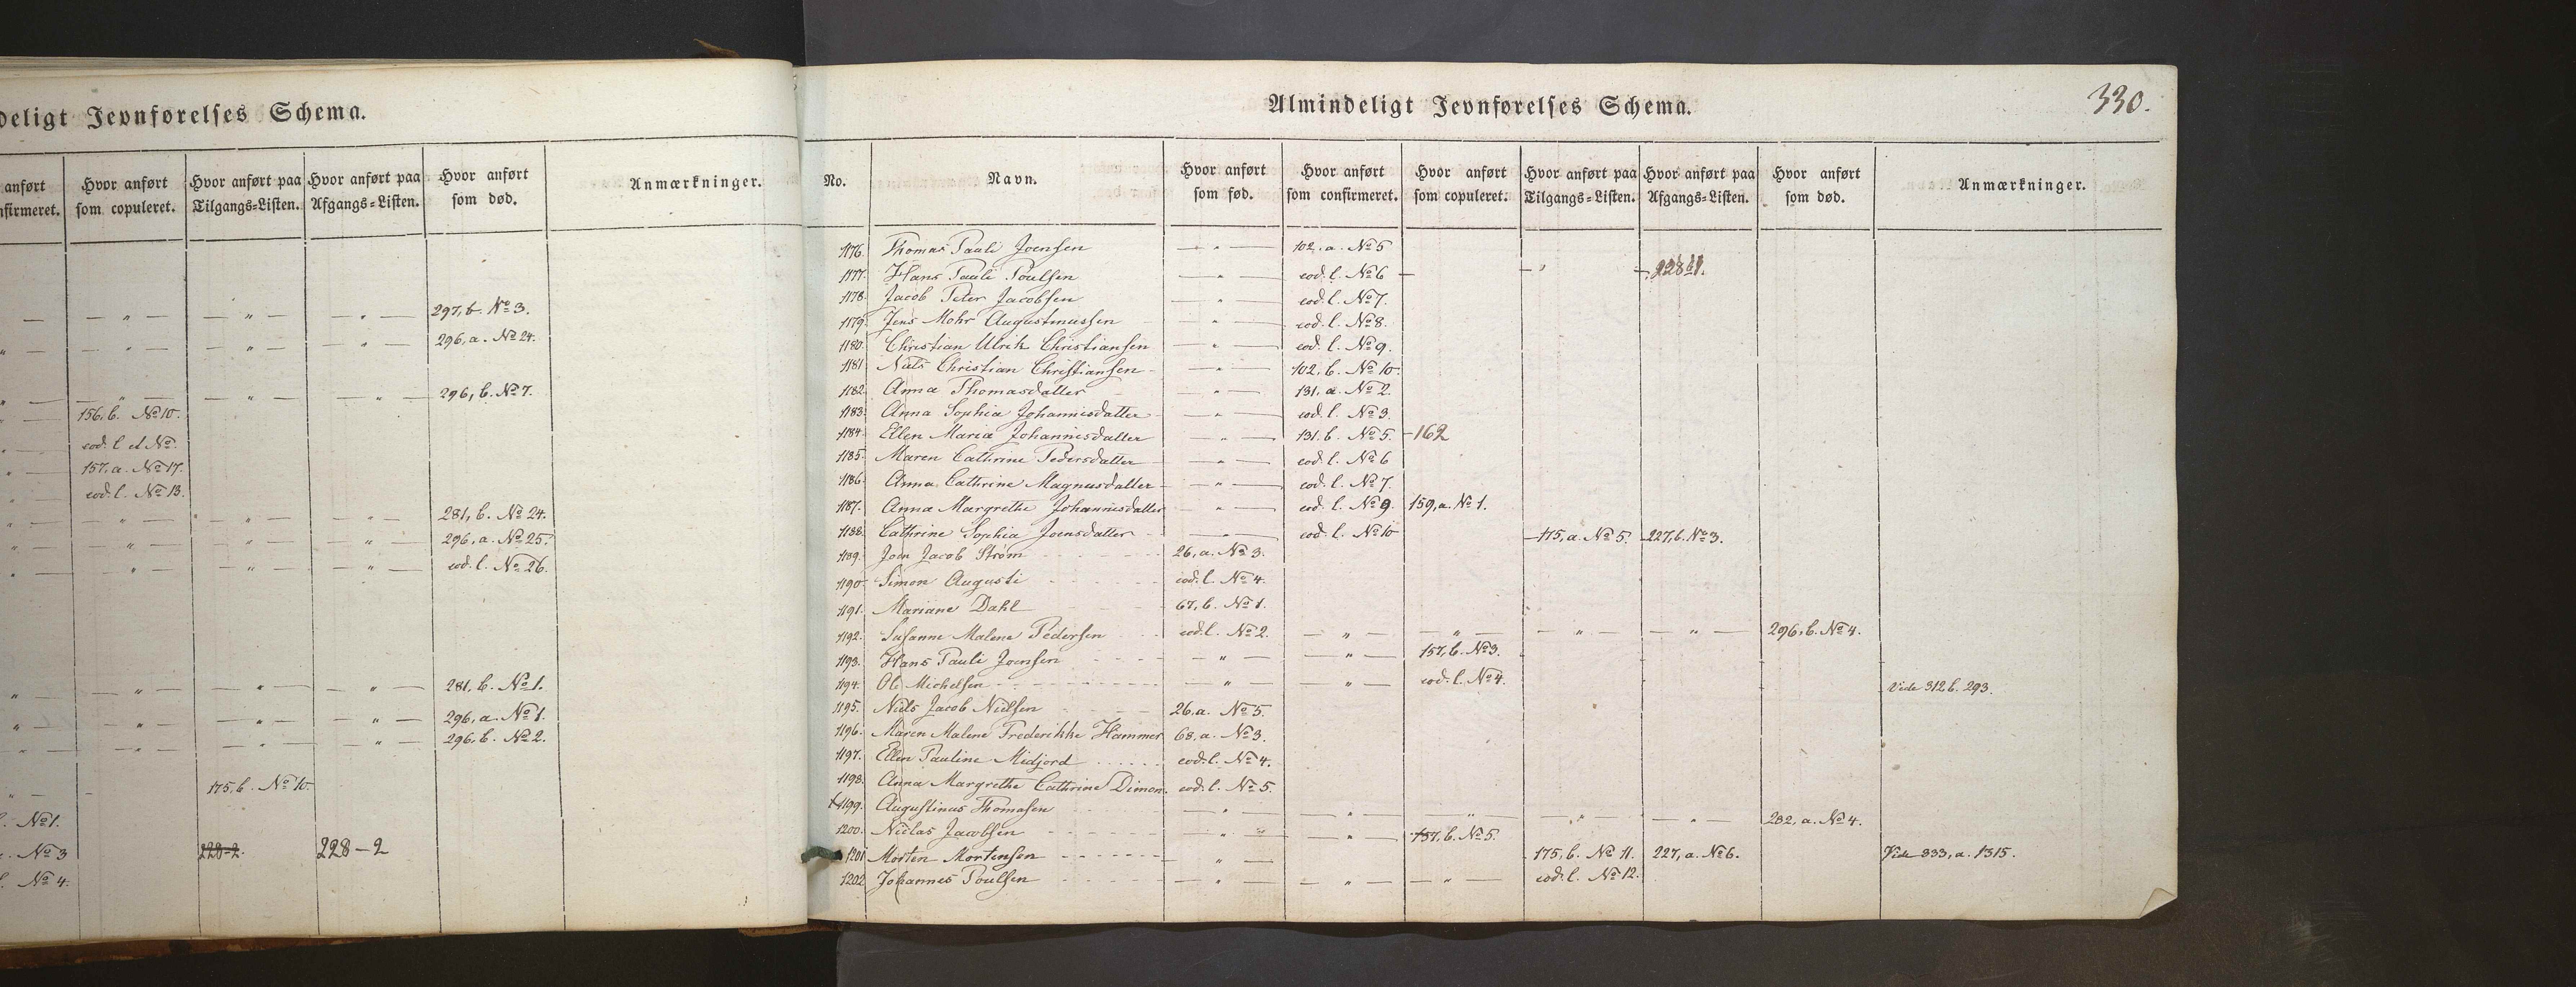 deligt Jevnførelses Schema.
anført
nfirmeret.
Hvor anført
som copuleret.
Hvor anført paa
Tilgangs-Listen.
Hvor anført paa
Afgangs-Listen.
Hvor anført
som død.
Anmærkninger.
— — " — — " — — " — 297, b. No 3.
" — — " — — " — — " — 296, a. No 24.
" — — " — — " — — " — 296, b. No 7.
" — 156, b. No 10.
" — eod. l. et No.
" — 157, a. No 17.
" — eod. l. No 13.
" — — " — — " — — " — 281, b. No 24.
" — — " — — " — — " — 296, a. No 25.
" — — " — — " — — " — eod. l. No 26.
" — — " — — " — — " — 281, b. No 1.
" — — " — — " — — " — 296, a. No 1.
" — — " — — " — — " — 296, b. No 2.
" — – 175, b. No 10.
l. No 1.
. No 3 228-2. 228-2
l. No 4.
Almindeligt Jevnførelses Schema.
330.
No.
Navn.
Hvor anført
som fød.
Hvor anført
som confirmeret.
Hvor anført
som copuleret.
Hvor anført paa
Tilgangs-Listen.
Hvor anført paa
Afgangs-Listen.
Hvor anført
som død.
Anmærkninger.
1176. Thomas Pauli Joensen — " — 102, a. No 5
1177. Hans Pauli Poulsen — " — eod. l. No 6 — – " –
1178. Jacob Peter Jacobsen — " — eod. l. No 7.
1179. Jens Mohr Augustinussen — " — eod. l. No 8.
1180. Christian Ulrik Christiansen — " — eod. l. No 9.
1181. Niels Christian Christiansen — " — 102, b. No 10.
1182. Anna Thomasdatter — " — 131, a. No 2.
1183. Anna Sophia Johannisdatter — " — eod. l. No 3.
1184. Ellen Maria Johannisdatter — " — 131. b. No 5. – 162
1185. Maren Cathrine Pedersdatter — " — eod. l. No 6
1186. Anna Cathrine Magnusdatter — " — eod. l. No 7.
1187. Anna Margrethe Johannisdatter — " — eod. l. No 9. 159, a. No 1.
1188. Cathrine Sophia Joensdatter — " — eod. l. No 10 175, a. No 5. 227, b. No 3.
1189. Joen Jacob Strøm 26, a. No 3.
1190. Simon Augusti eod. l. No 4.
1191. Mariane Dahl 67, b. No 1.
1192. Susanne Malene Pedersen eod. l. No 2. — " — — " — — " — — " — 296, b. No 4.
1193. Hans Pauli Joensen — " — — " — 157, b. No 3.
1194. Ole Michelsen — " — — " — eod. l. No 4. Vide 312 b. 293.
1195. Niels Jacob Nielsen 26, a. No 5.
1196. Maren Malene Frederikke Hammer 68, a. No 3.
1197. Ellen Pauline Midjord eod. l. No 4.
1198. Anna Margrethe Cathrine Dimon. eod. l. No 5.
1199. Augustinus Thomasen — " — — " — — " — — " — — " — 282, a. No 4.
1200. Niclas Jacobsen — " — — " — 157, b. No 5.
1201 Morten Mortensen — " — 175, b. No 11. 227, a. No 6. Vide 333, a. 1315.
1202 Johannes Poulsen — " — — " — — " — eod. l. No 12.